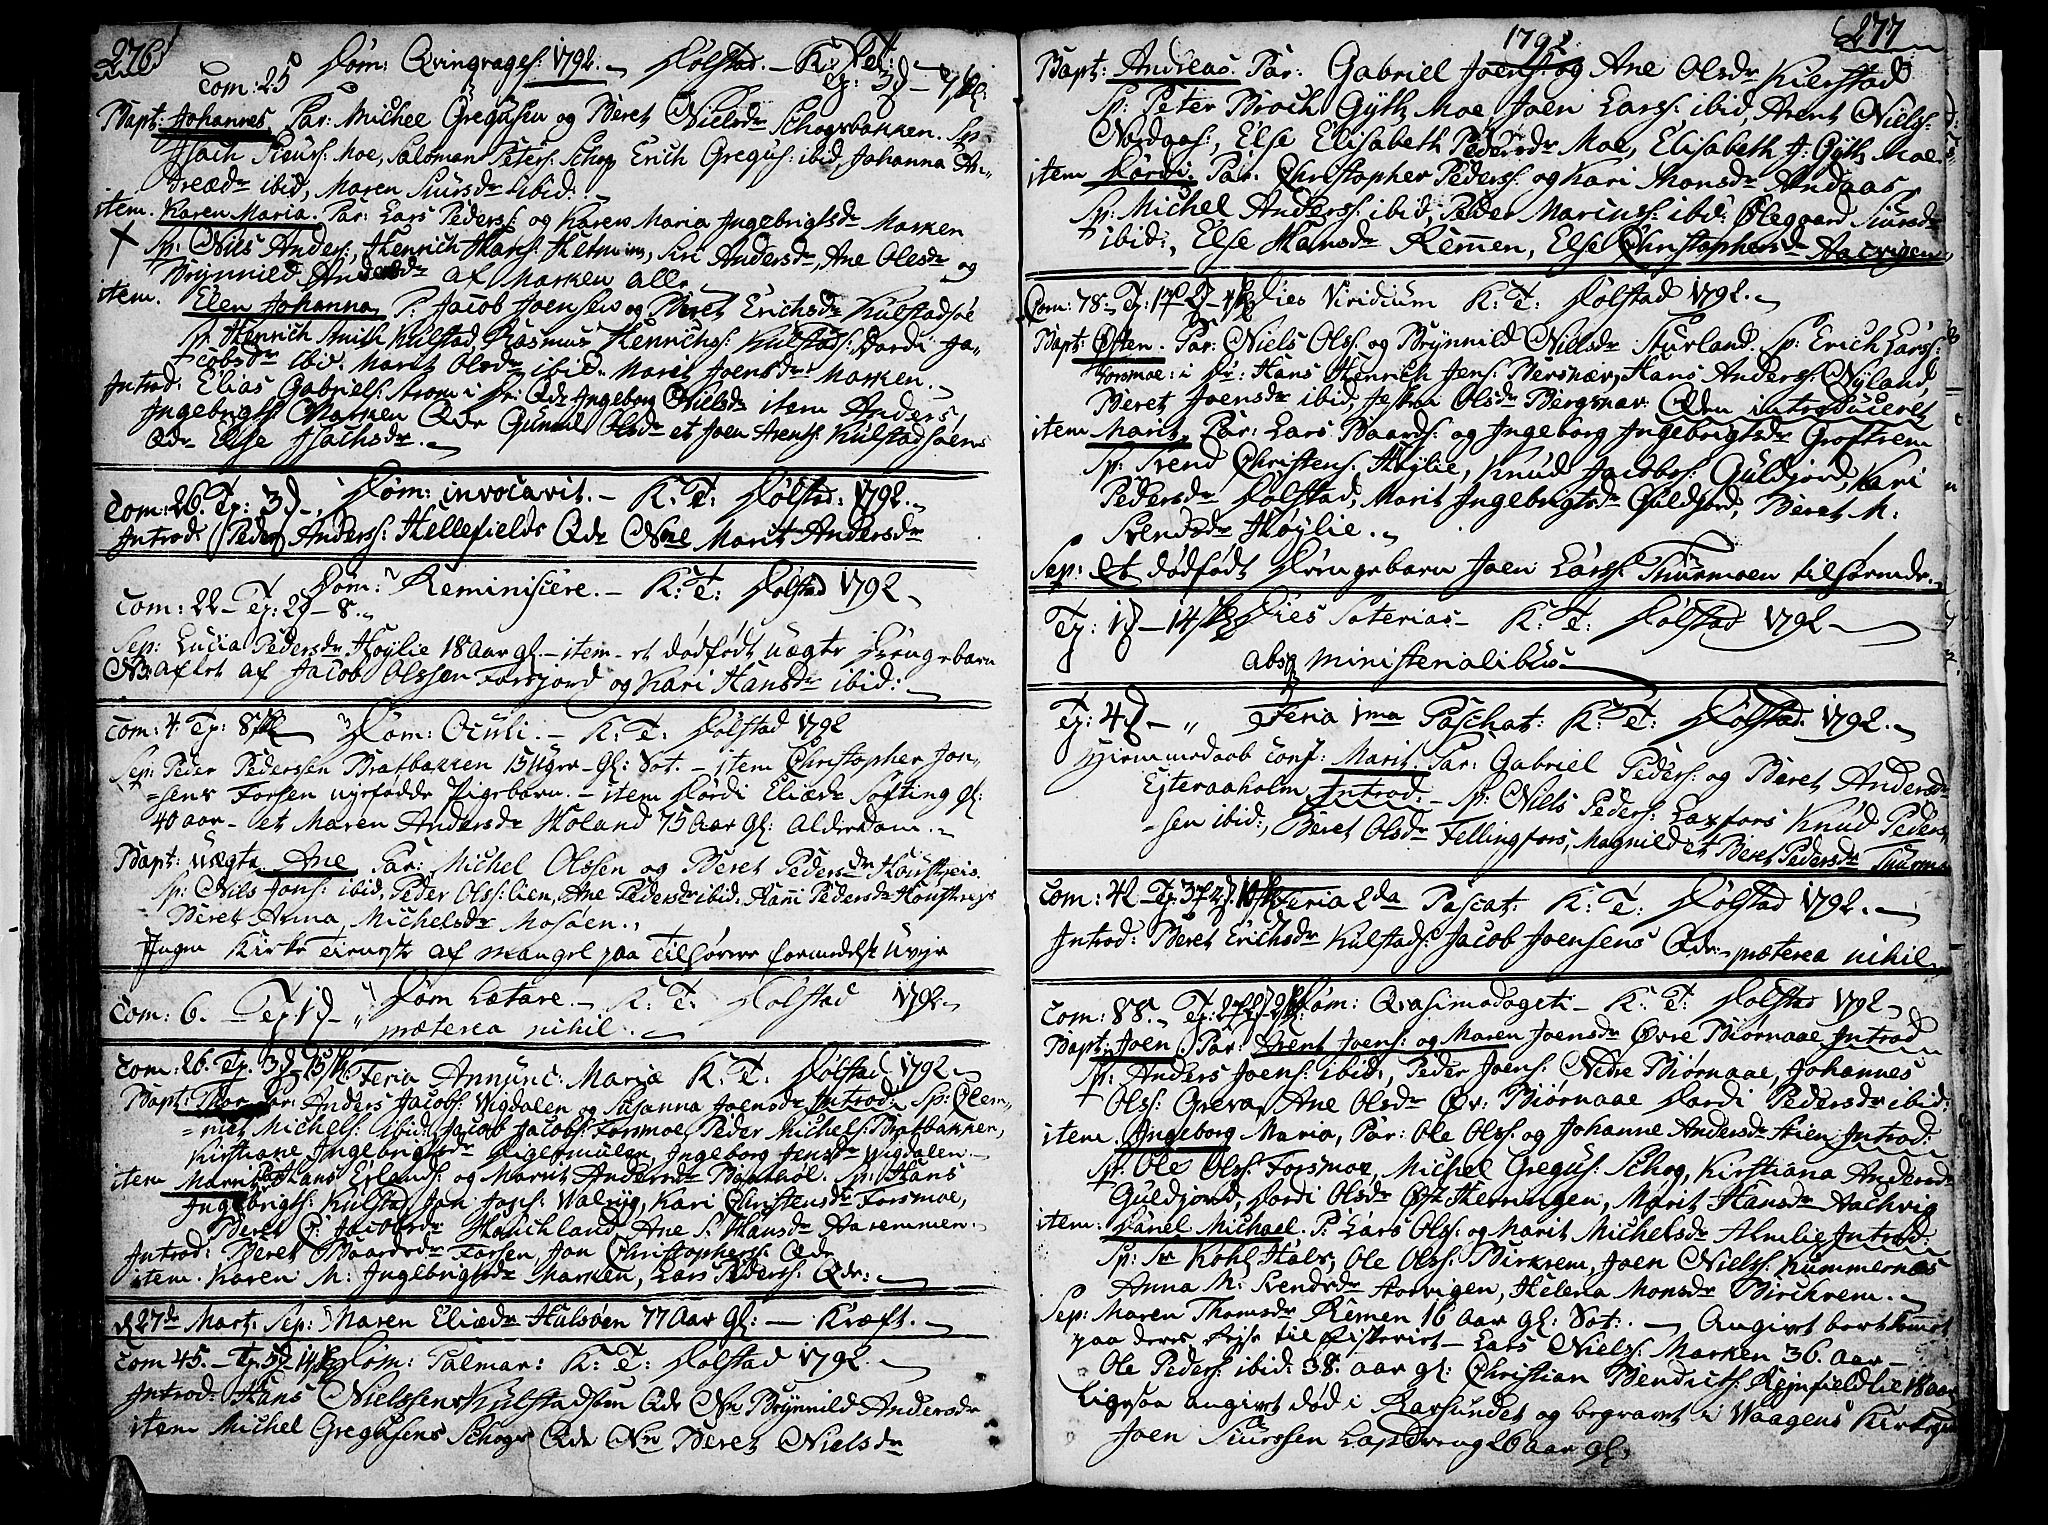 276
Com: 25 Dom: Qvinqvages: 1792. Dolstad. K: Tt:
Bapt: Johannes. Par: Michel Gregusen og Beret Nielsdr Schogsbakken. Sp:
Isach Siurs: Moe, Salomon Peters: Schog Erich Gregus: ibid, Johanna An-
dreædr ibid, Maren Siursdr ibid:
item. Karen Maria. Par: Lars Peders: og Karen Maria Ingebrigtsdr Marken
Sp: Niels Anders:, Henrich Hans:, Siri Andersdr, Ane Olsdr og
Brynnild Andersdr af Marken alle
item. Elen Johanna, P: Jacob Joensen og Beret Erichsdr Kulstadsøe
Sp: Henrich Smith Kulstad, Rasmus Henrichs: Kulstads: Dordi Ja-
cobsdr ibid. Marit Olsdr ibid. Marit Joensdr Marken.
Introd: Elias Gabriels: Strom: Qdr Ingeborg Nielsdr item Anders
Ingebrigts: Marken Qdr Gunnil Olsdr et Joen Arents: Kulstadsøens
Qdr Else Isachsdr.
Com: 26. Tp: 3 Dom: invocavit. K: T: Dolstad: 1792.
Introd Peder Anders: Hellefields Qdr Nne Marit Andersdr
Com: 22 Tp: 2 - 8. Dom: Reminiscere. K: T: Dolstad 1792
Sep: Lucia Pedersdr Høylie 18 aar gl. item et dødfødt uægte Drengebarn
NB: aflet af Jacob Olssen Forsjord og Kari Hansdr ibid:
Com: 4 Tp: 8 Dom: Oculi. K: T: Dolstad 1792
Sep: Peder Pederssen Bratbakken 15 Uger gl: Sot. item Christopher Jon-
sens Forsen nyefødde Pigebarn. item Dordi Eliædr Søfting gl:
40 aar - et Maren Andersdr Holand 75 Aar gl: Alderdom.
Bapt: uægte Ane Par: Michel Olssen og Beret Pedersdr
Sp: Nils Jons: ibid, Peder Ols: lien, Ane Pedersdr ibid. Pedersdr
Beret Anna Michelsdr Mosøen.
Ingen Kirke Tieneste af mangel paa Tilhørere formedelst Uvejr
Com: 6. Tp 1 Dom Lætare. K: T: Dolstad 1792.
præterea nihil.
Com: 26. Tp: 3 Feria Annunc: Mariæ K: T: Dolstad 1792
Bapt: Par: Anders Jacobs: Vigdalen og Susanna Joensdr Introd: Sp: Clem-
met Michels: ibid, Jacob Jacobs: Forsmoe, Peder Michels: Bratbakken,
Kirstiane Ingebrigtsdr, Ingeborg Jensdr Vigdalen.
item Marit Par: Hans Erlands: og Marit Andersdr Sp: Hans
Ingebrigts: Kulstad, Jon Kari Christensdr Forsmoe,
Beret C: Jacobsdr Hauchland, Ane S: Hansdr Aaremmen.
Introd: Beret Baardsdr Forsen, Jon Christophers: Qdr
item. Karen M: Ingebrigtsdr Marken, Lars Peders: Qdr:
d 27de Mart: Sep: Maren Eliædr Halsøen 77 Aar gl: Kræft.
Com 45. Tp: 5 Dom: Palmar: K: T: Dolstad 1792.
Introd: Hans Nielssens Kulstadsøen Qdr Nn Brynnild Andersdr
item Michel Gregusens Schogs Qdr Nn Beret Nielsdr
1792 277
Bapt: Andreas. Par: Gabriel Joens: og Ane Olsdr Kierstad
Sp: Peter Broch Gyth Moe, Joen Lars: ibid, Arent Niels:
Nordaas:, Else Elisabeth Pedersdr Moe, Elisabeth J: Gyth Moe
item Dordi: Par: Christopher Peders: og Kari Monsdr Andaas,
Sp: Michel Anders: ibid, Peder Marcus: ibid: Olegaard Siursdr
ibid:, Else Hansdr Remmen, Else Christophersdr Aacvigen
Com: 78. Dies Viridium K: T: Dolstad 1792.
Bapt: Østen. Par: Niels Ols: og Brynnild Nielsdr Stuvland. Sp: Erich Lars:
Forsmoe: Hans Henrich Jens: Hans Anders: Nyland,
Beret Joensdr ibid, Olsdr Qdn introduceret
item Marit, Par: Lars Baards: og Ingeborg Ingebrigtsdr Groftrem
Sp: Svend Christens: Høylie, Knud Jacobs: Guldjord, Kari
Pedersdr Dolstad, Marit Ingebrigtsdr Guldjord, Beret M:
Svendsdr Høylie.
Sep: Et dødfødt Drengebarn Joen Lars: tilhørende.
Tp: 1 - 14 Dies Soterias K: T: Dolstad 1792
absq ministerialibus
Tp: 4 Feria 1ma Paschat: K: T: Dolstad. 1792.
Hiemmedaab conf: Marit. Par: Gabriel Peders: og Beret Andersdr
Ejteraaholm Introd. Sp: Niels Peders: Laxfors Knud Peders-
sen ibid:, Beret Olsdr Fellingfors, Magnild et Beret Pedersdr
Com: 42 Feria 2da Pascat: K: T: Dolstad 1792.
Introd: Beret Erichsdr Kulstads: Jacob Joensens Qdr: præterea nihil
Com: 88. Dom: Qvasimodogeti K: T: Dolstad 1792
Bapt: Joen. Par: Arent Joens: og Maren Joensdr Øvre Biornaae Introd
Sp: Anders Joens: ibid:, Peder Joens: Nedre Biørnaae, Johannes
Ols: Greva, Ane Olsdr Øv: Biørnaae Dordi Pedersdr ibid:
item. Ingeborg Maria, Par: Ole Ols: og Johanne Andersdr Introd:
Sp: Ole Ols: Forsmoe, Michel Gregus: Schog, Kirstiana Andersdr
Guldjord, Dordi Olsdr Herringen, Marit Hansdr Aachvig
item: Danel Michael. P: Lars Ols: og Marit Michelsdr Almlie Introd:
Sp: Sr Kohl Hals, Ole Ols: Birkrem, Joen Niels: Kummernes
Anna M: Svendsdr Helena Monsdr Birchrem.
Sep: Maren Thomsdr Remen 16 aar gl: Sot: Angivet bortkommet
paa deres Rejse til Fiskeriet - Lars Niels: Marken 36. aar -
Ole Peders: ibid: 38. aar gl: Christian Bendicts: Rejnfieldlie 18 aar
ligesaa angivet død i Raftsundet og begravet i Vaagens Kirkegaard
Joen Siurssen Lapdreng 26 aar gl: